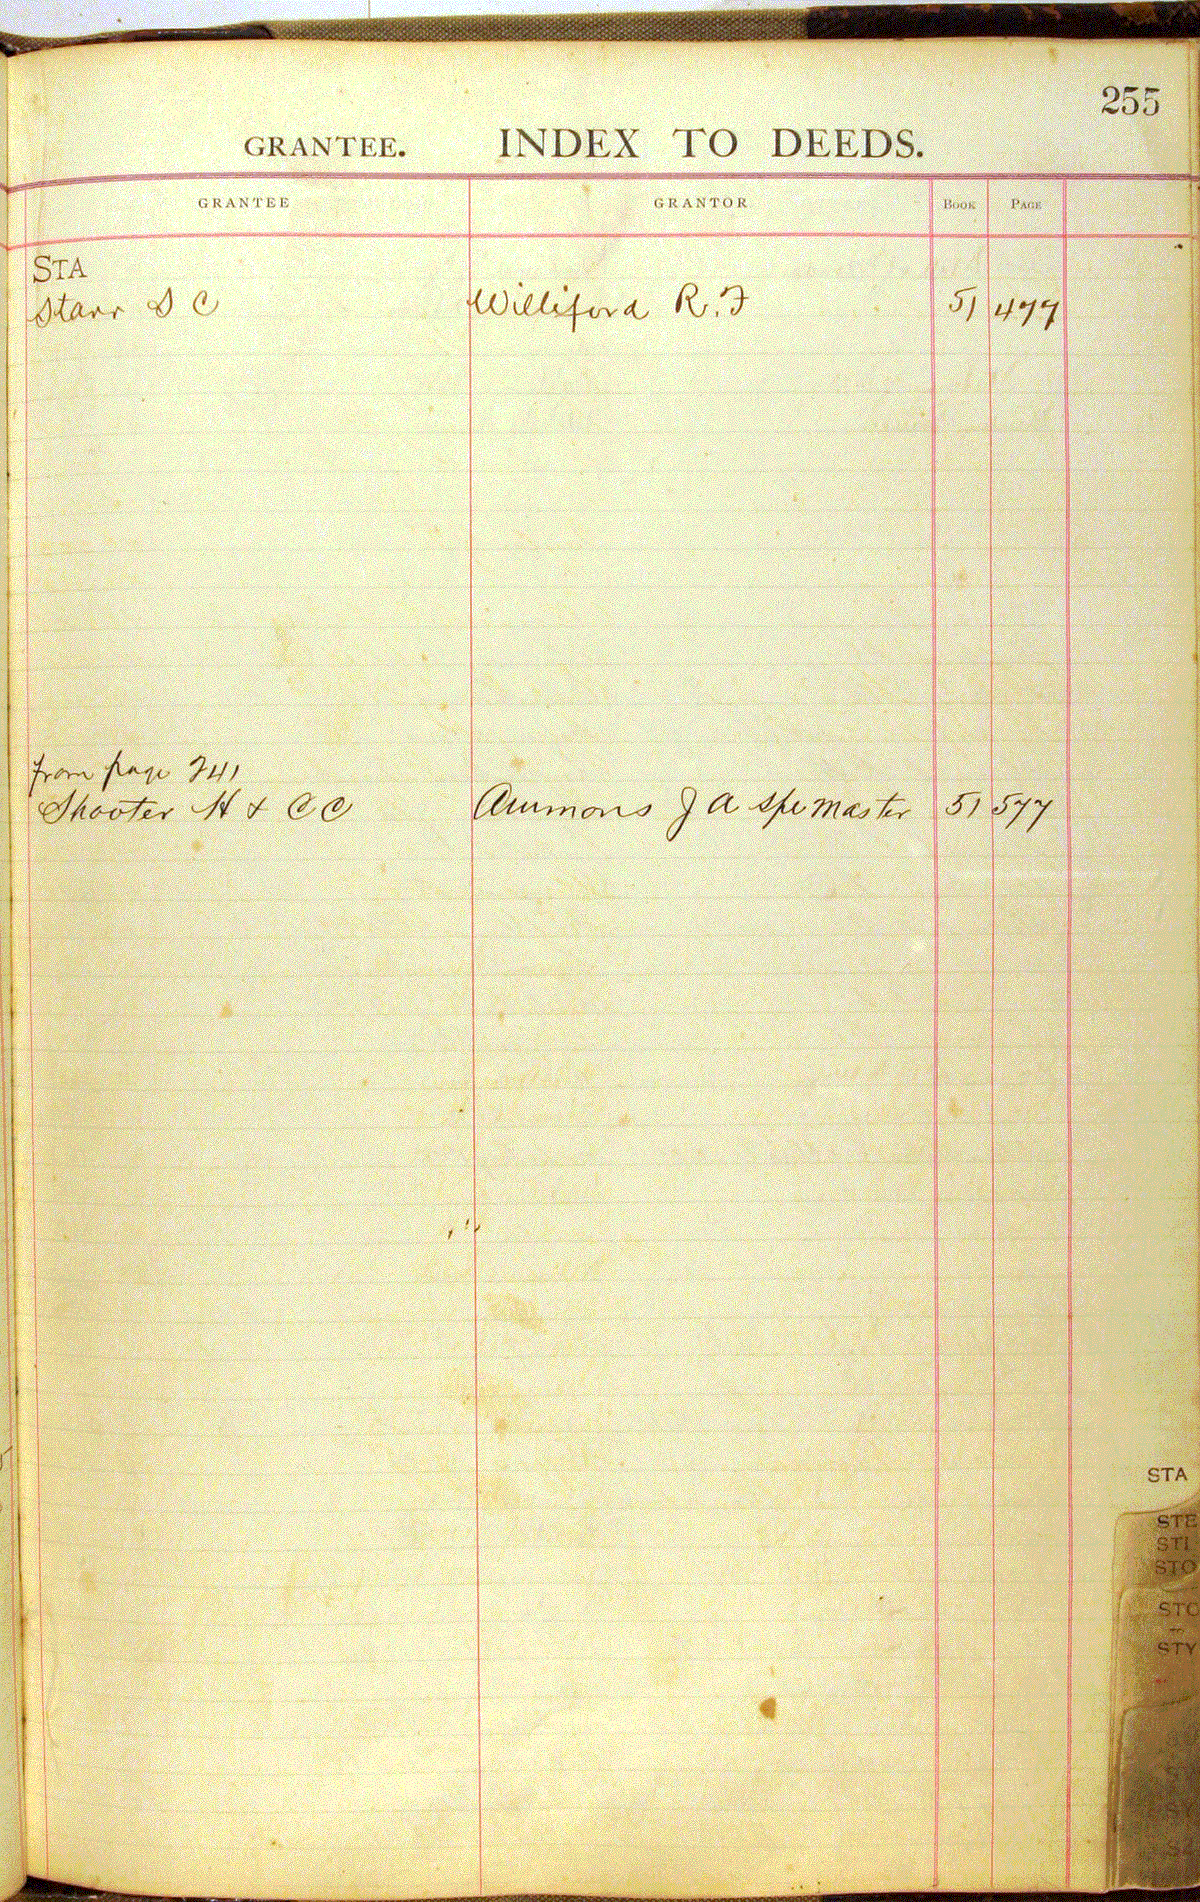 255
GRANTEE. INDEX TO DEEDS.
GRANTEE GRANTOR BOOK PAGE
STA
Starr S C Williford R. F 51 477
from page 241
Shooter H & C C Ammons J A Spe Master 51 577
STA
STE
STI
STO
STO
STY